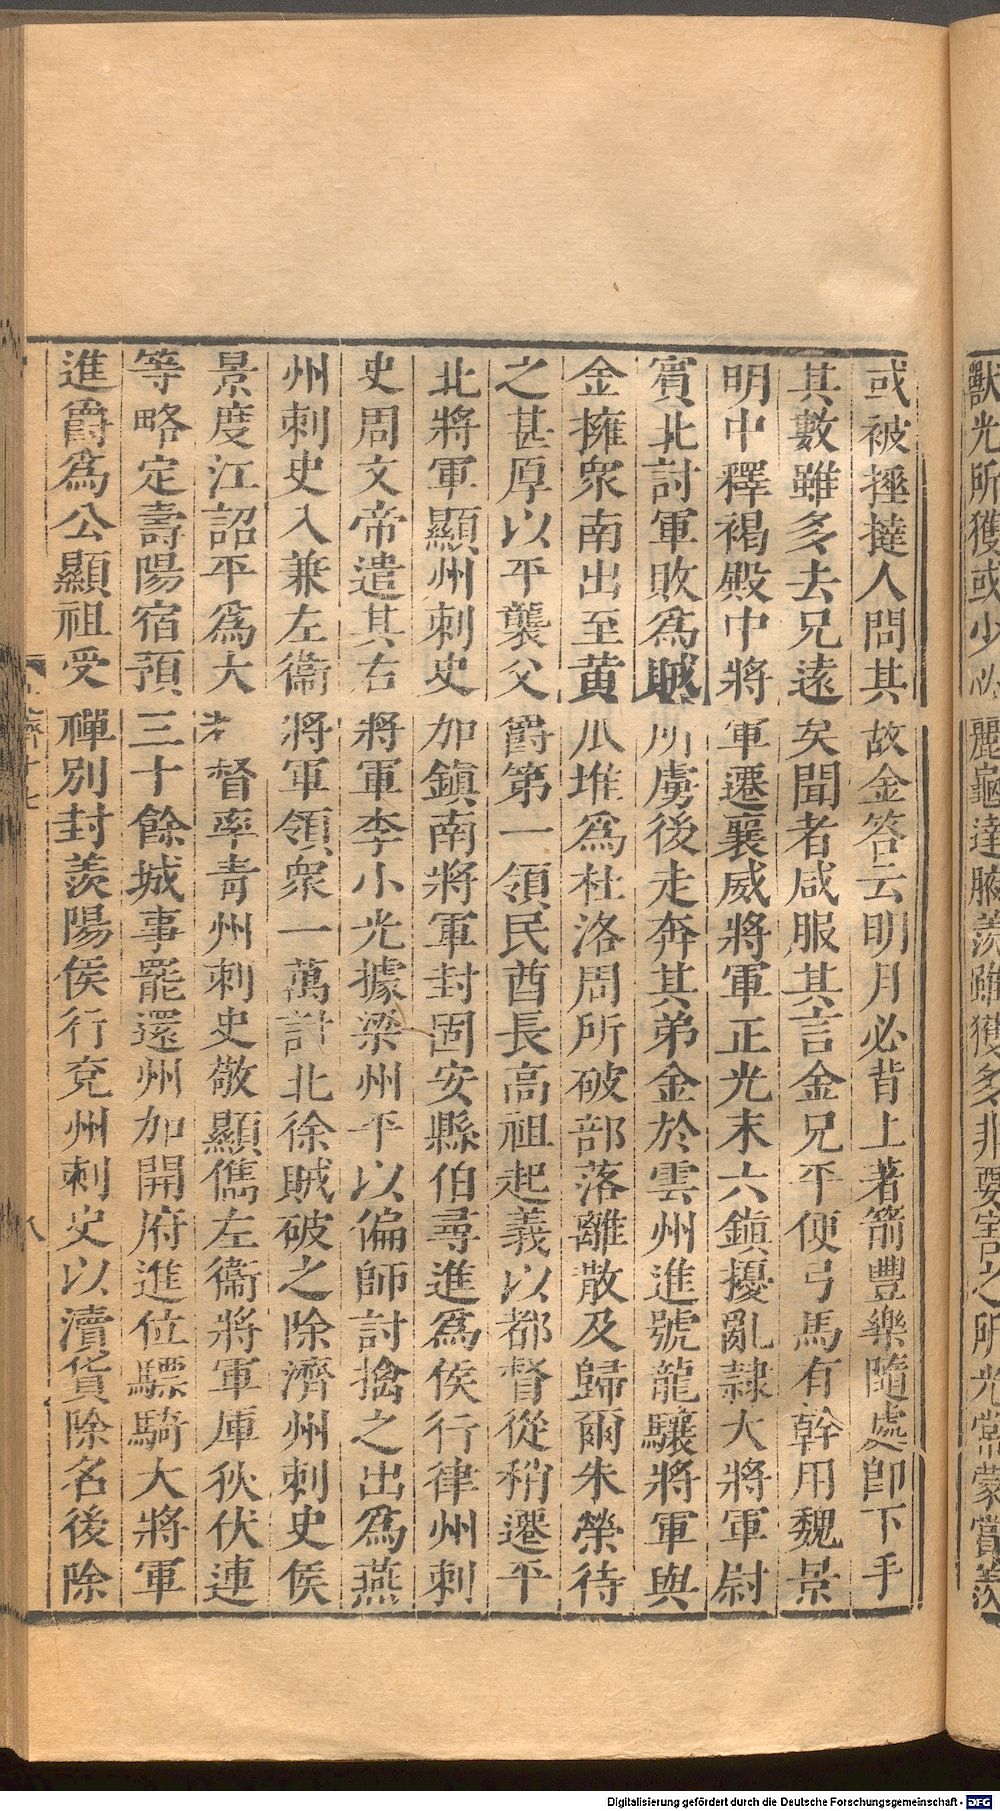 或被捶撻人問其故金答云明月必背上著箭豐樂隨處卽下手
其數雖多去兄遠矣聞者咸服其言金兄平便弓馬有幹用魏景
明中釋褐殿中將軍遷襄威將軍正光末六鎭擾亂隷大將軍尉
賓北討軍敗爲賊所虜後走奔其弟金於雲州進號龍驤將軍與
金擁衆南出至黃瓜堆爲杜洛周所破部落離散及歸爾朱榮待
之甚厚以平襲父爵第一領民酋長高祖起義以都督從稍遷平
北將軍顯州刺史加鎭南將軍封固安縣伯尋進爲侯行律州刺
史周文帝遣其右將軍李小光據梁州平以偏師討擒之出爲燕
州刺史入兼左衞將軍領衆一萬討北徐賊破之除濟州刺史侯
景度江詔平爲大都督率靑州刺史敬顯儁左衞將軍庫狄伏連
等略定壽陽宿預三十餘城事罷還州加開府進位驃騎大將軍
進爵爲公顯祖受禪別封羨陽侯行兗州刺史以瀆貨除名後除
十七
八
獸光所獲或少必麗龜達腋羨雖獲多非要害之所光常蒙賞羨
Digitalisierung gefördert durch die Deutsche Forschungsgemeinschaft - DFG